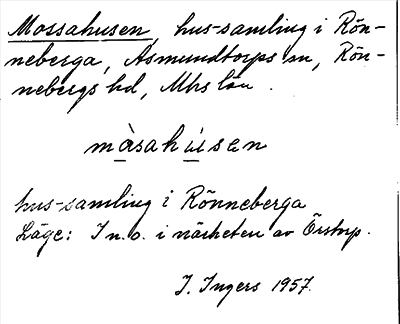 Mossahusen, hus-samling i Rön-
neberga, Asmundtorps sn, Rön-
nebergs hd, Mhs län.
màsahúsen
hus-samling i Rönneberga
Läge: I n.o. i närheten av Örstorp.
I. Ingers 1957.